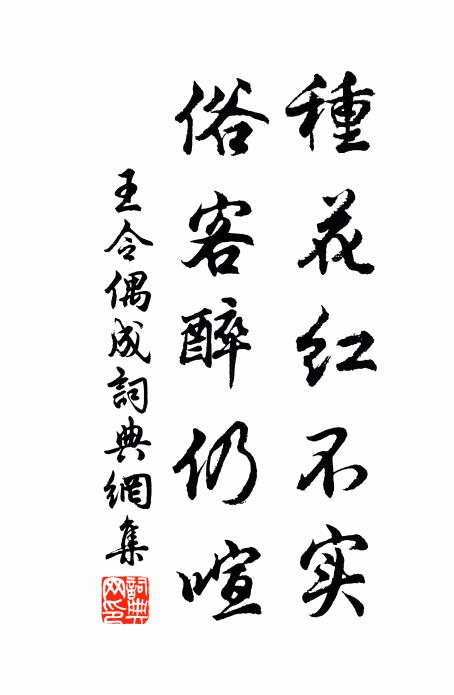 種花红不实
俗客醉仍喧
王令偶成詞典網集